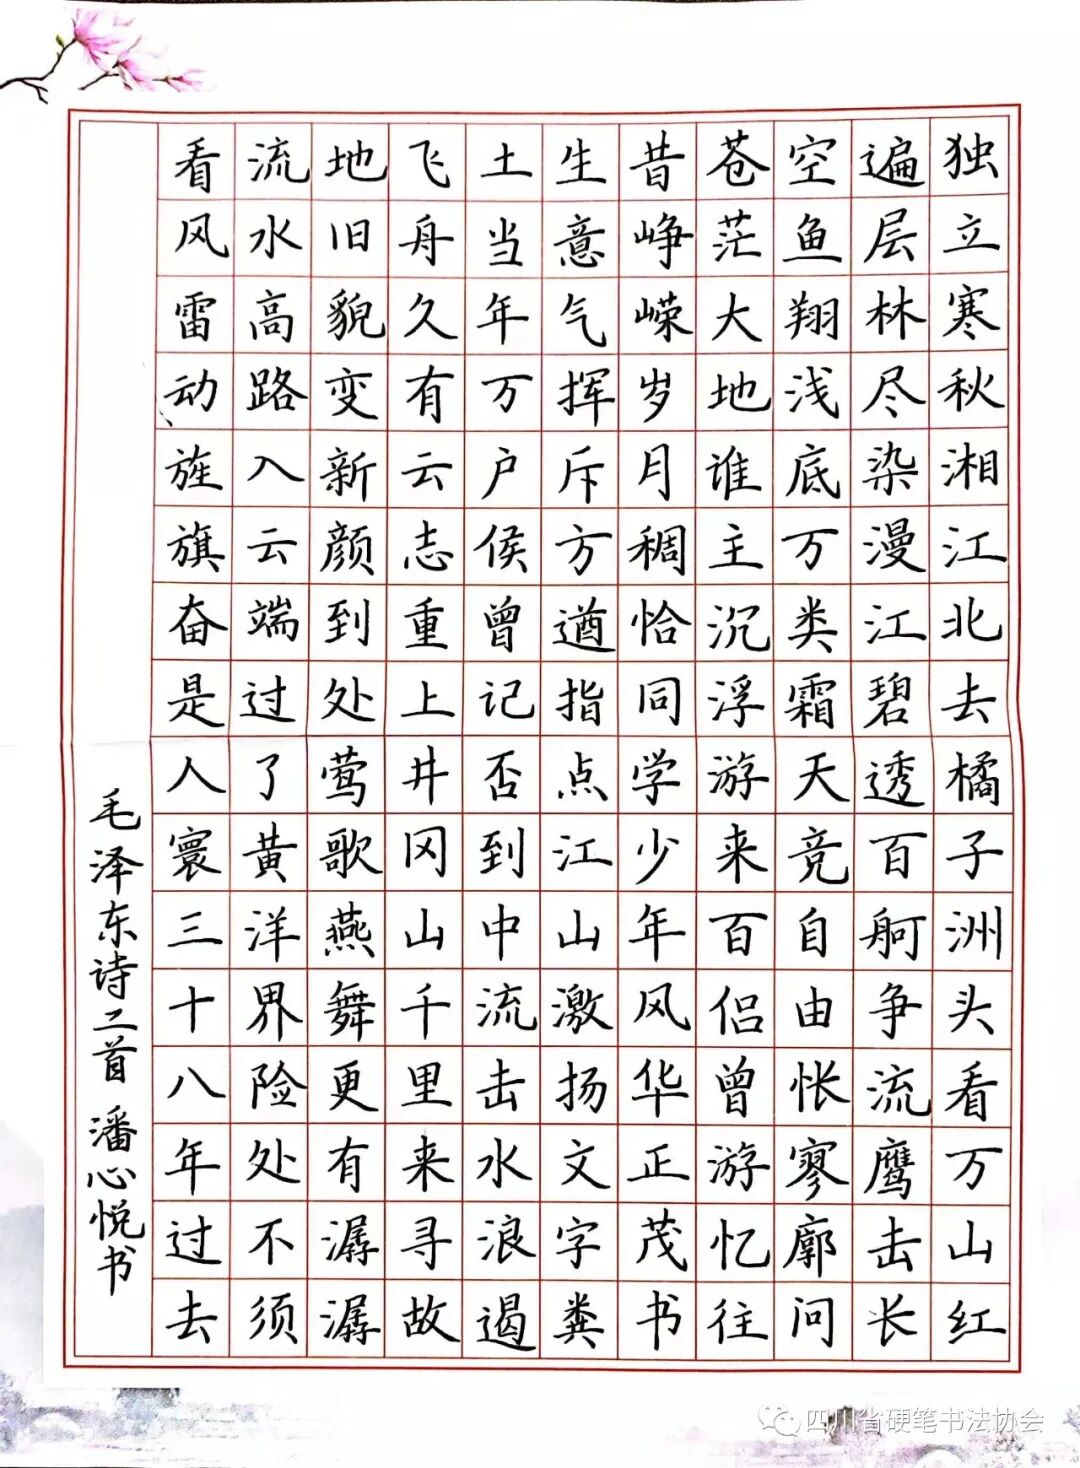 独立寒秋湘江北去橘子洲头看万山红
遍层林尽染漫江碧透百舸争流鹰击长
空鱼翔浅底万类霜天竞自由怅寥廓问
苍茫大地谁主沉浮游来百侣曾游忆往
昔峥嵘岁月稠恰同学少年风华正茂书
生意气挥斥方遒指点江山激扬文字粪
土当年万户侯曾记否到中流击水浪遏
飞舟久有云志重上井冈山千里来寻故
地旧貌变新颜到处莺歌燕舞更有潺潺
流水高路入云端过了黄洋界险处不须
看风雷动旌旗奋是人寰三十八年过去
毛泽东诗二首 潘心悦书
四川省硬笔书法协会